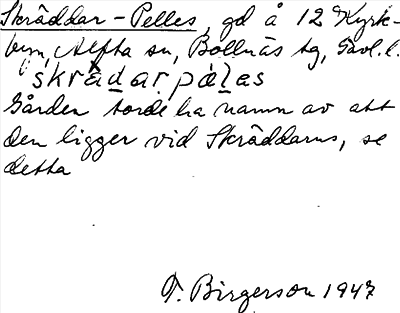 Skräddar-Pelles, gd å 12 Kyrk-
byn, Alfta sn, Bollnäs tg, Gävl. l.
skràdar pàlas
Gården torde ha namn av att
den ligger vid Skräddarns, se
detta
T. Birgerson 1947